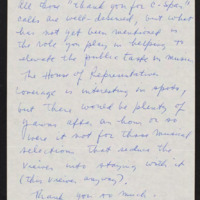 All those "thank you for C-Span"
calls are well-deserved, but what
has not yet been mentioned is
the role you play in helping to
elevate the public taste in music.
The House of Representatives
coverage is interesting in spots,
but there would be plenty of
yawns after an hour or so
were it not for those musical
selections that seduce the
viewer into staying with it
(this viewer, anyway).
Thank you so much.